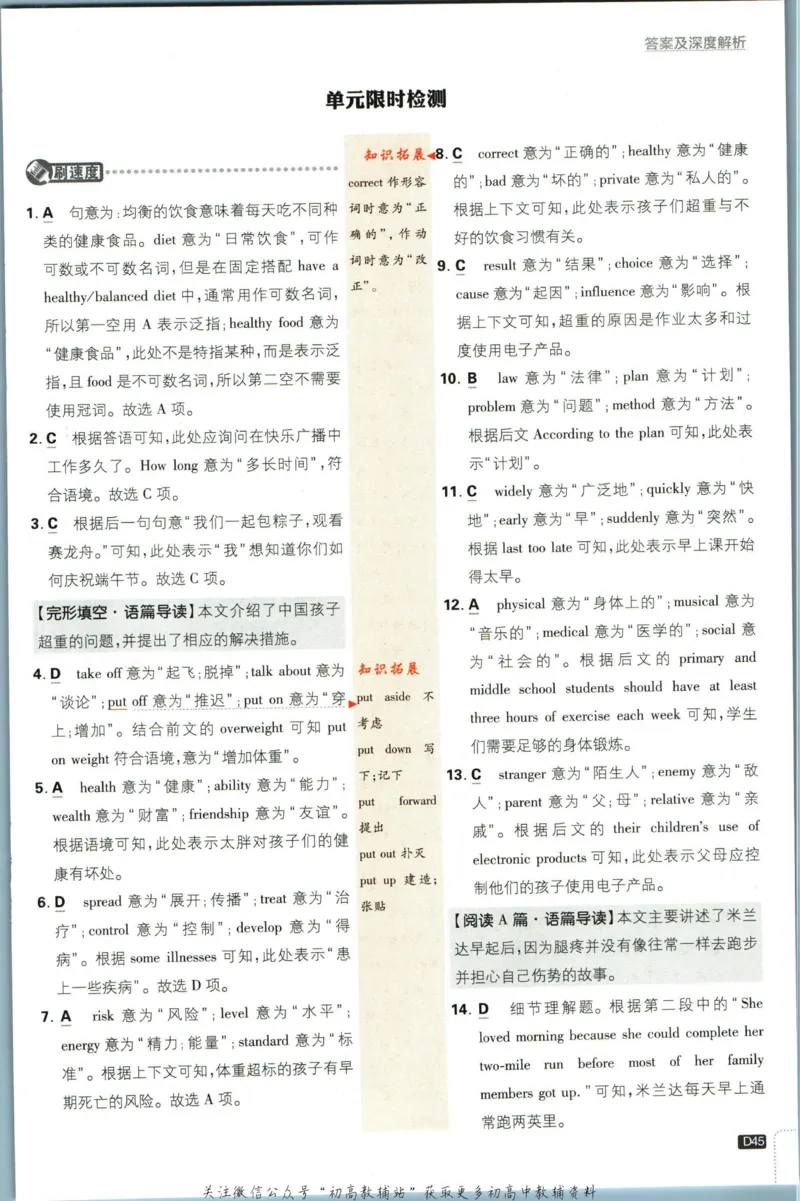 答案及深度解析
单元限时检测
刷速度
1. A 句意为:均衡的饮食意味着每天吃不同种
类的健康食品。diet 意为“日常饮食”,可作
可数或不可数名词,但是在固定搭配 have a
healthy/balanced diet 中,通常用作可数名词,
所以第一空用 A 表示泛指;healthy food 意为
“健康食品”,此处不是特指某种,而是表示泛
指,且 food 是不可数名词,所以第二空不需要
使用冠词。故选 A 项。
2. C 根据答语可知,此处应询问在快乐广播中
工作多久了。How long 意为“多长时间”,符
合语境。故选 C 项。
3. C 根据后一句句意“我们一起包粽子,观看
赛龙舟。”可知,此处表示“我”想知道你们如
何庆祝端午节。故选 C 项。
【完形填空·语篇导读】本文介绍了中国孩子
超重的问题,并提出了相应的解决措施。
4. D take off 意为“起飞;脱掉”;talk about 意为
“谈论”;put off 意为“推迟”;put on 意为“穿
上;增加”。结合前文的 overweight 可知 put
on weight 符合语境,意为“增加体重”。
5. A health 意为“健康”;ability 意为“能力”;
wealth 意为“财富”;friendship 意为“友谊”。
根据语境可知,此处表示太胖对孩子们的健
康有坏处。
6. D spread 意为“展开;传播”;treat 意为“治
疗”;control 意为“控制”;develop 意为“得
病”。根据 some illnesses 可知,此处表示“患
上一些疾病”。故选 D 项。
7. A risk 意为“风险”;level 意为“水平”;
energy 意为“精力;能量”;standard 意为“标
准”。根据上下文可知,体重超标的孩子有早
期死亡的风险。故选 A 项。
知识拓展
correct 作形容
词时意为“正
确的”,作动
词时意为“改
正”。
知识拓展
put aside 不
考虑
put down 写
下;记下
put forward
提出
put out 扑灭
put up 建造;
张贴
8. C correct 意为“正确的”;healthy 意为“健康
的”;bad 意为“坏的”;private 意为“私人的”。
根据上下文可知,此处表示孩子们超重与不
好的饮食习惯有关。
9. C result 意为“结果”;choice 意为“选择”;
cause 意为“起因”;influence 意为“影响”。根
据上下文可知,超重的原因是作业太多和过
度使用电子产品。
10. B law 意为“法律”;plan 意为“计划”;
problem 意为“问题”;method 意为“方法”。
根据后文 According to the plan 可知,此处表
示“计划”。
11. C widely 意为“广泛地”;quickly 意为“快
地”;early 意为“早”;suddenly 意为“突然”。
根据 last too late 可知,此处表示早上课开始
得太早。
12. A physical 意为“身体上的”;musical 意为
“音乐的”;medical 意为“医学的”;social 意
为“社会的”。根据后文的 primary and
middle school students should have at least
three hours of exercise each week 可知,学生
们需要足够的身体锻炼。
13. C stranger 意为“陌生人”;enemy 意为“敌
人”;parent 意为“父;母”;relative 意为“亲
戚”。根据后文的 their children's use of
electronic products 可知,此处表示父母应控
制他们的孩子使用电子产品。
【阅读 A 篇·语篇导读】本文主要讲述了米兰
达早起后,因为腿疼并没有像往常一样去跑步
并担心自己伤势的故事。
14. D 细节理解题。根据第二段中的“She
loved morning because she could complete her
two-mile run before most of her family
members got up.”可知,米兰达每天早上通
常跑两英里。
D45
关注微信公众号“初高教辅站”获取更多初高中教辅资料